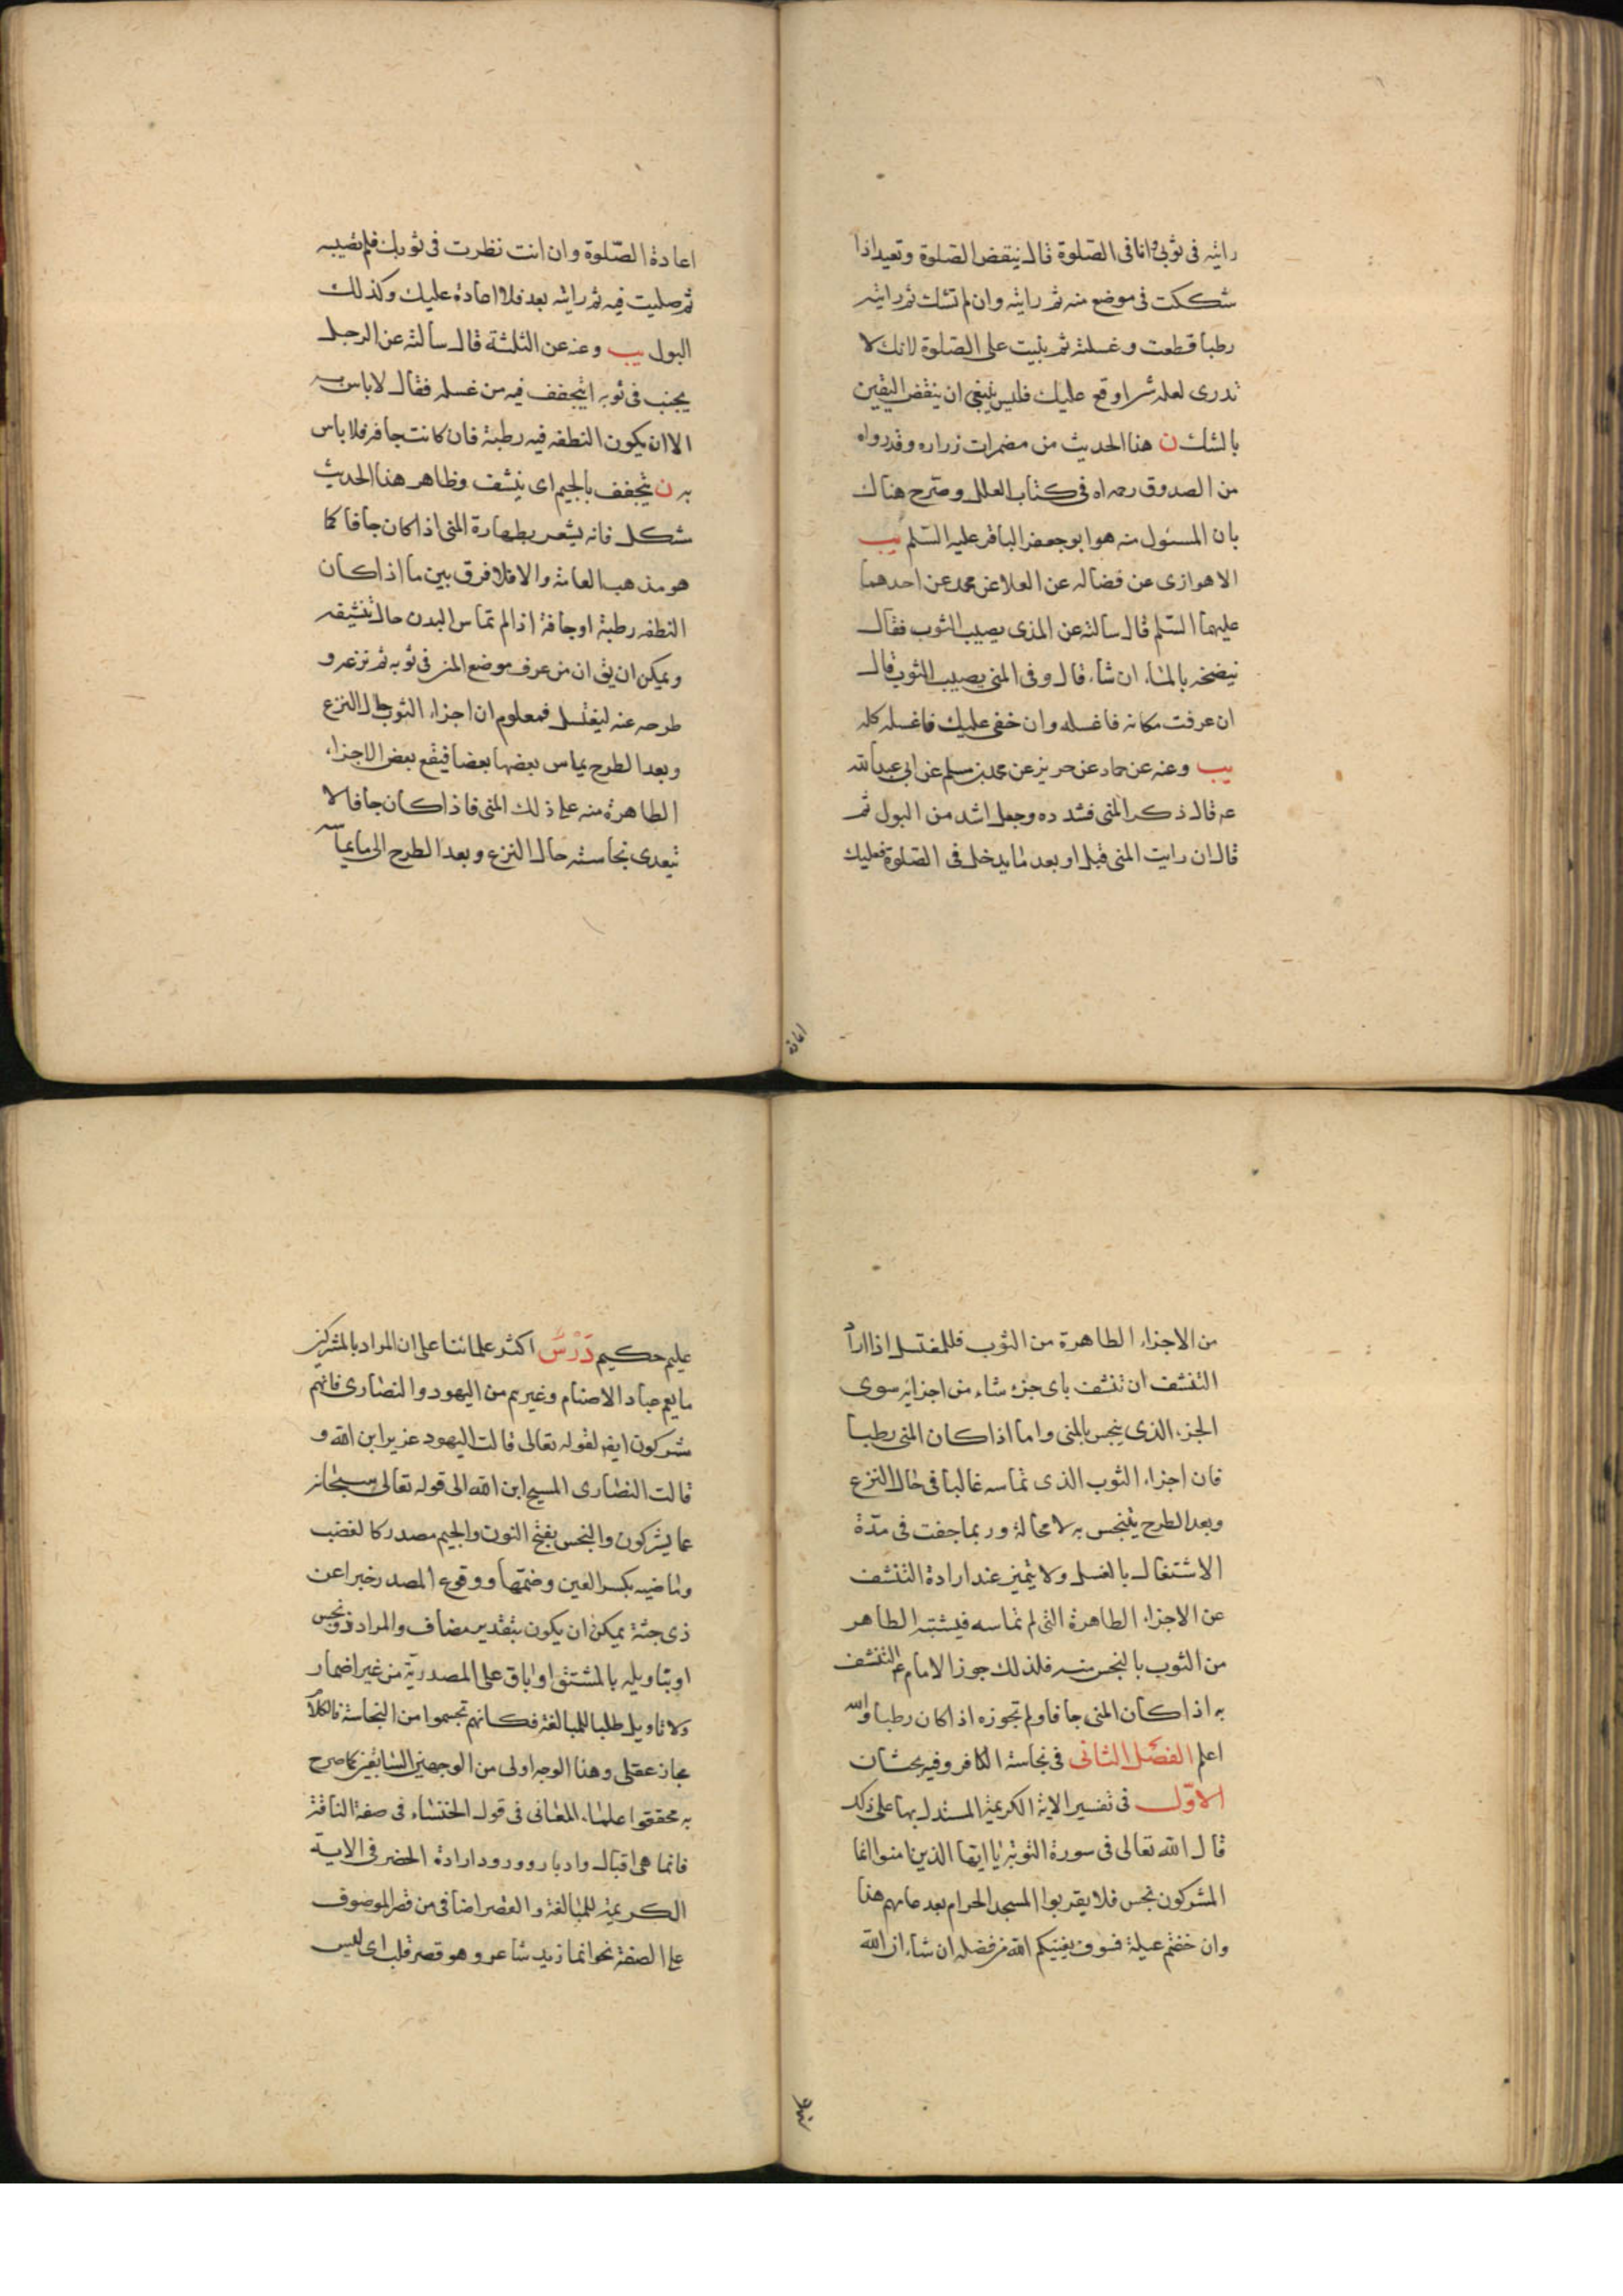 رايته في ثوبي وانا في الصلوة قال ينقض الصلوة وتعيد اذا
شككت في موضع منه ثم رايته وان لم تشك ثم رايته
رطبا قطعت وغسلته ثم بنيت على الصلوة لانك لا
تدري لعله شئ اوقع عليك فليس ينبغي ان ينقض اليقين
بالشك ن هذا الحديث من مضمرات زراره وقد رواه
من الصدوق رحمه الله في كتاب العلل وصرح هناك
بان المسئول منه هو ابو جعفر الباقر عليه السّلم يب
الاهوازي عن فضاله عن العلا عن محمد عن احدهما
عليهما السّلم قال سالته عن المذي يصيب الثوب فقال
ينضحه بالماء ان شاء قال وفي المني يصيب الثوب قال
ان عرفت مكانه فاغسله وان خفي عليك فاغسله كله
يب وعنه عن حماد عن حريز عن محمد بن مسلم عن ابي عبد الله
عه قال ذكر المني فشدده وجعله اشد من البول ثم
قال ان رايت المني قبل او بعد ما يدخل في الصلوة فعليك
اعادة
اعادة الصّلوة وان انت نظرت في ثوبك فلم تصبه
ثم صليت فيه ثم رايته بعد فلا اعادة عليك وكذلك
البول يب وعنه عن الثلثة قال سالته عن الرجل
يجنب في ثوبه ايتجفف فيه من غسله فقال لا باس به
الا ان يكون النطفه فيه رطبة فان كانت جافه فلا باس
به ن يتجفف بالجيم اي ينشف وظاهر هذا الحديث
مشكل فانه يشعر بطهارة المني اذا كان جافا كما
هو مذهب العامة والا فلا فرق بين ما اذا كان
النطفه رطبة او جافة اذا لم تماس البدن حال تنشيفه
ويمكن ان يق ان من عرف موضع المني في ثوبه ثم نزعه و
طرحه عنه ليغتسل فمعلوم ان اجزاء الثوب حال النزع
وبعد الطرح يماس بعضها بعضا فيقع بعض الاجزاء
الطاهرة منه على ذلك المني فاذا كان جافا لا
تتعدى نجاسته حال النزع وبعد الطرح الى ما يماسه
من الاجزاء الطاهرة من الثوب فللمغتسل اذا اراد
التنشف ان تنشف باي جزء شاء من اجزايه سوى
الجزء الذي ينجس بالمني واما اذا كان المني رطبا
فان اجزاء الثوب الذي تماسه غالبا في حال النزع
وبعد الطرح يتنجس به لا محالة وربما جفت في مدّة
الاشتغال بالغسل ولا يتميز عند ارادة التنشف
عن الاجزاء الطاهرة التي لم تماسه فيشتبه الطاهر
من الثوب بالنجس منه فلذلك جوز الامام ع التنشف
به اذا كان المني جافا ولم تجوزه اذا كان رطبا والله
اعلم الفصل الثاني في نجاسة الكافر وفيه بحثان
الاوّل في تفسير الاية الكريمة المستدل بها على ذلك
قال الله تعالى في سورة التوبة يا ايها الذين امنوا انما
المشركون نجس فلا يقربوا المسجد الحرام بعد عامهم هذا
وان خفتم عيلة فسوف يغنيكم الله من فضله ان شاء ان الله
عليم
عليم حكيم دَرْسٌ اكثر علمائنا على ان المراد بالمشركين
ما يعم عباد الاصنام وغيرهم من اليهود والنصارى فانهم
مشركون ايضا لقوله تعالى قالت اليهود عزير ابن الله و
قالت النصارى المسيح ابن الله الى قوله تعالى سبحانه
عما يشركون والنجس بفتح النون والجيم مصدر كالغضب
وماضيه بكسر العين وضمها ووقوع المصدر خبرا عن
ذي جثة يمكن ان يكون بتقدير مضاف والمراد ذو نجس
او بتاويله بالمشتق او باق على المصدرية من غير اضمار
ولا تاويل طلبا للمبالغة فكانهم تجسموا من النجاسة فالكلام
مجاز عقلي وهذا الوجه اولى من الوجهين السابقين كما صرح
به محققوا علماء المعاني في قول الخنساء في صفة الناقة
فانما هي اقبال وادبار وورود اداة الحصر في الاية
الكريمة للمبالغة والقصر اضافي من قصر الموصوف
على الصفة نحو انما زيد شاعر وهو قصر قلب اي ليس